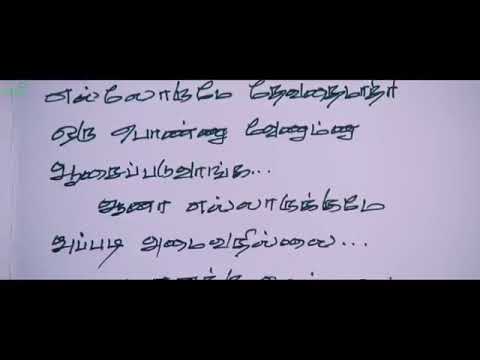 எல்லோருமே தேவதைமாதிரி
ஒரு பொண்ணு வேணும்னு
ஆசைப்படுவாங்க...
ஆனா எல்லாருக்குமே
அப்படி அமைவதில்லை...